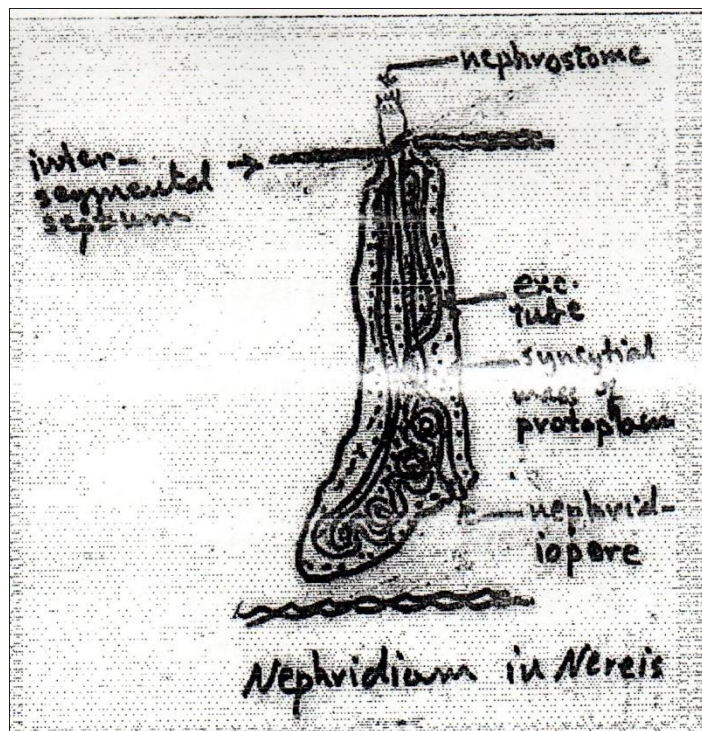 nephrostome
inter-
segmental
septum
exc.
tube
syncytial
mass of
protoplasm
nephrid-
iopore
Nephridium in Nereis